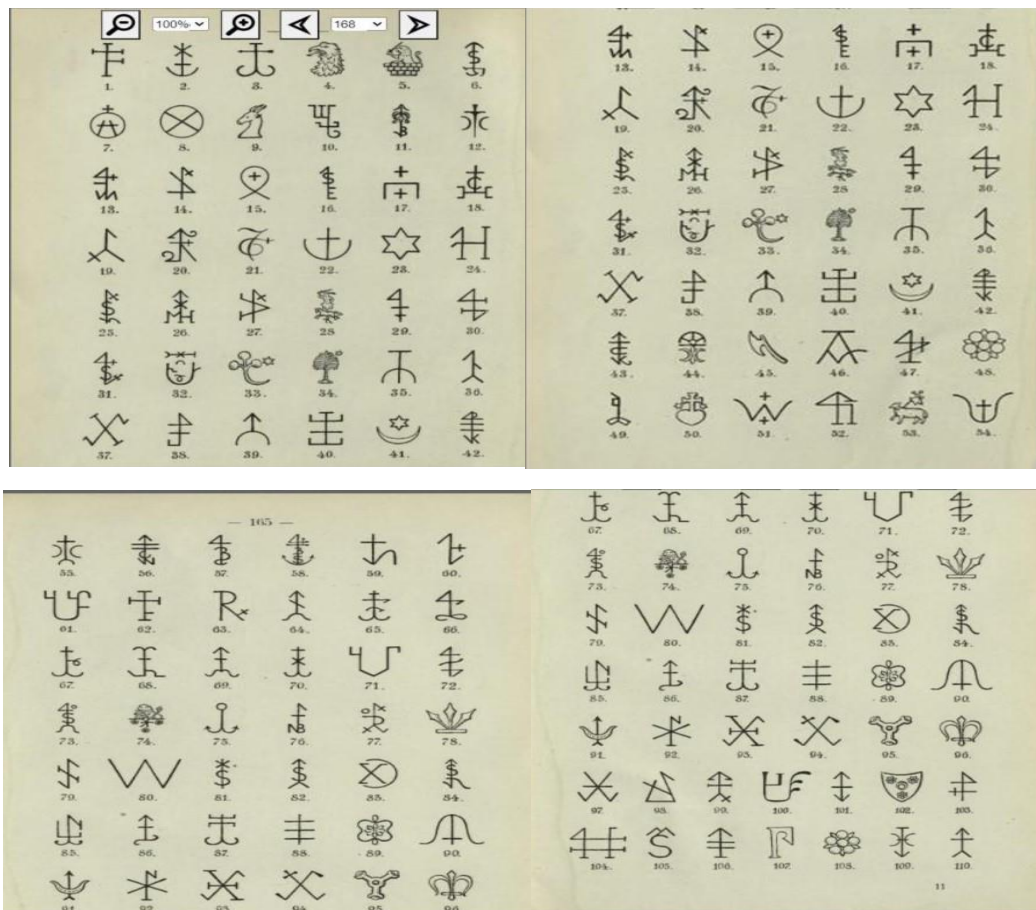 100% 168
1. 2. 3. 4. 5. 6.
7. 8. 9. 10. 11. 12.
13. 14. 15. 16. 17. 18.
19. 20. 21. 22. 23. 24.
25. 26. 27. 28 29. 30.
31. 32. 33. 34. 35. 36.
37. 38. 39. 40. 41. 42.
13. 14. 15. 16. 17. 18.
19. 20. 21. 22. 23. 24.
25. 26. 27. 28 29. 30.
31. 32. 33. 34. 35. 36.
37. 38. 39. 40. 41. 42.
43. 44. 45. 46. 47. 48.
49. 50. 51. 52. 53. 54.
— 165 —
55. 56. 57. 58. 59. 60.
61. 62. 63. 64. 65. 66.
67. 68. 69. 70. 71. 72.
73. 74. 75. 76. 77. 78.
79. 80. 81. 82. 83. 84.
85. 86. 87. 88. 89. 90.
67. 68. 69. 70. 71. 72.
73. 74. 75. 76. 77. 78.
79. 80. 81. 82. 83. 84.
85. 86. 87. 88. 89. 90.
91. 92. 93. 94. 95. 96.
97. 98. 99. 100. 101. 102. 103.
104. 105. 106. 107. 108. 109. 110.
11